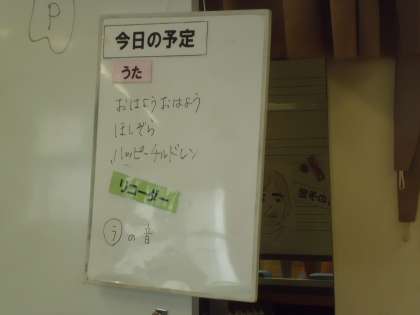 P
今日の予定
うた
おはようおはよう
ほしぞら
ハッピーチルドレン
リコーダー
ラの音